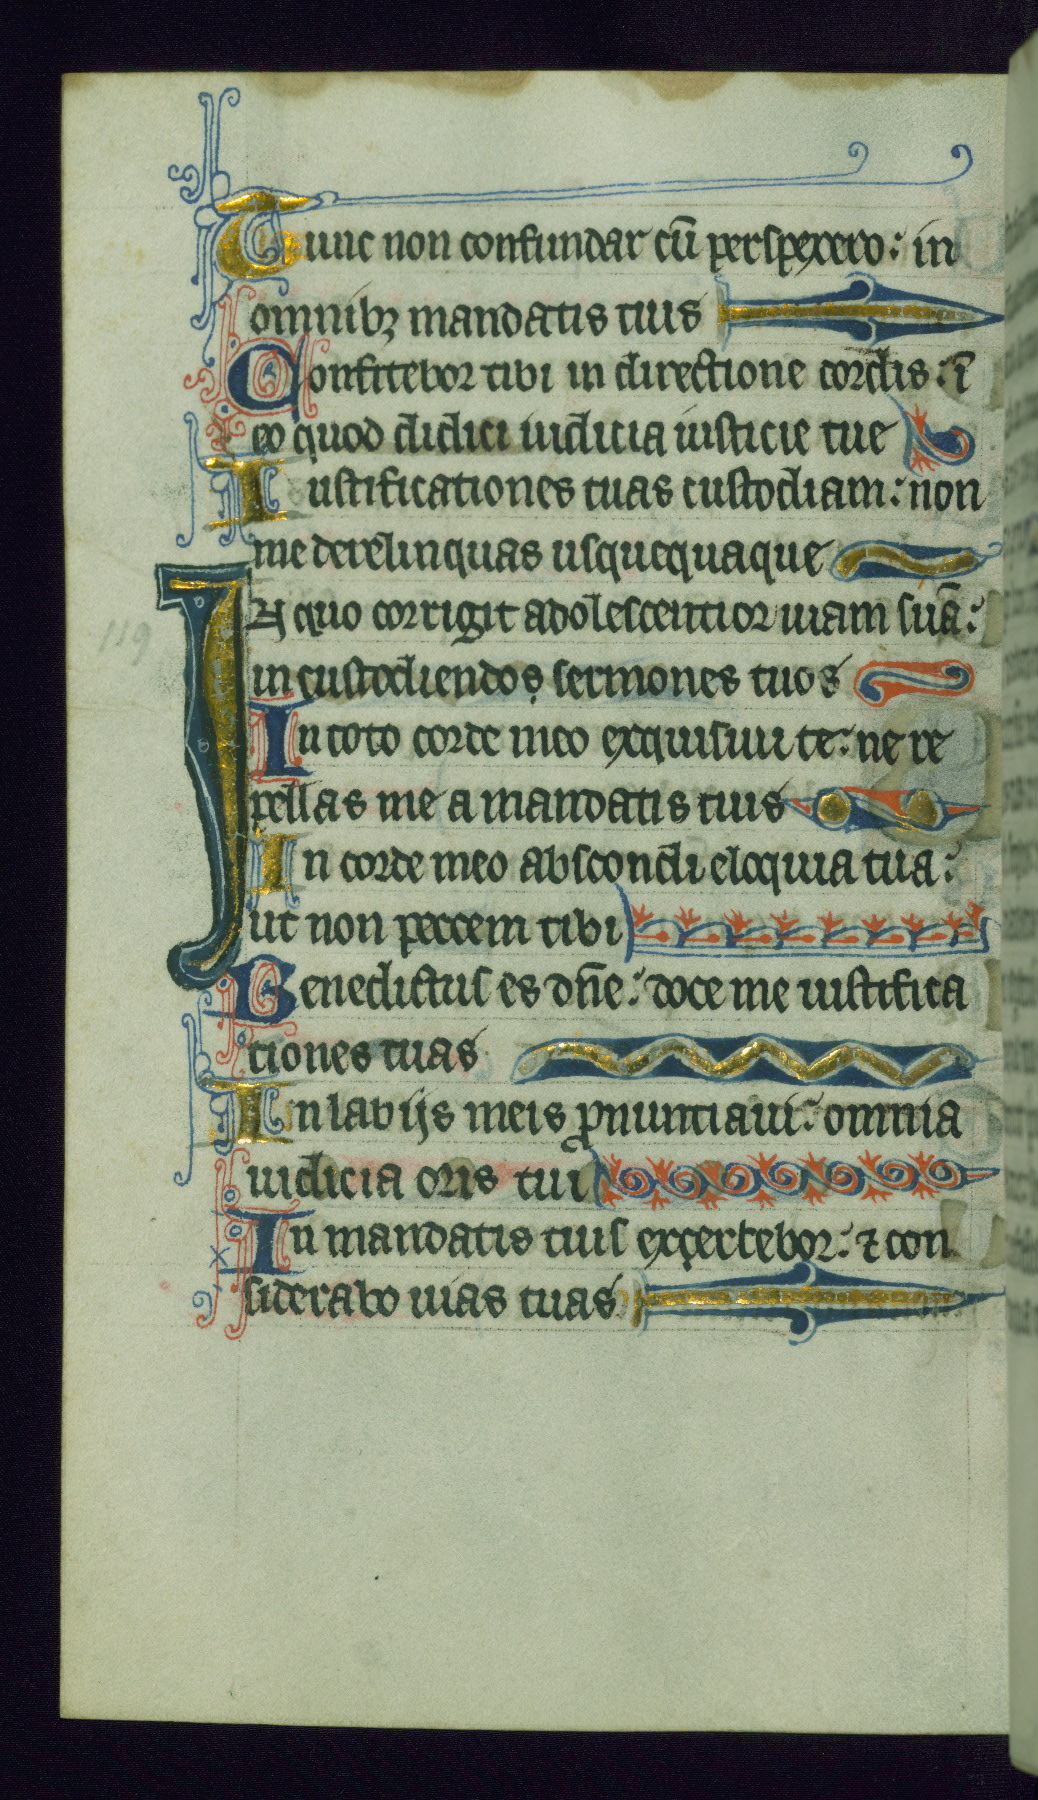 Tunc non confundar cū perspexero: in
omnibꝫ mandatis tuis
Confitebor tibi in directione cordis: ī
eo quod didici iudicia iusticie tue
Iustificationes tuas custodiam: non
me derelinquas usquequaque
IN quo corrigit adolescentior uiam suā:
in custodiendos sermones tuos
In toto corde meo exquisiui te: ne re
pellas me a mandatis tuis
In corde meo abscondi eloquia tua:
ut non peccem tibi
Benedictus es dn̄e: doce me iustifica
tiones tuas
In labijs meis ꝓnuntiaui: omnia
iudicia oris tui
In mandatis tuis exertebor: ⁊ con
siderabo uias tuas
119